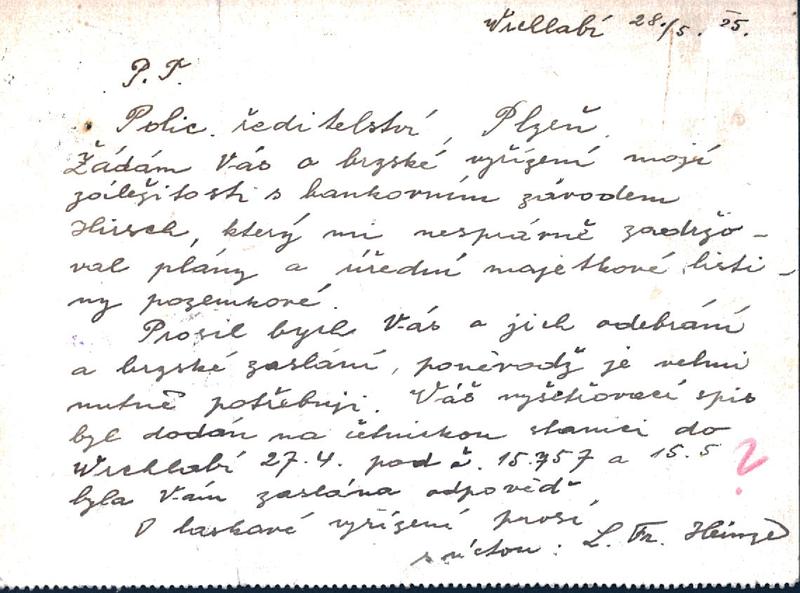 Wrchlabí 28./5. 25.
P. T.
Polic. ředitelství, Plzeň.
Žádám Vás o brzské vyřízení mojí
záležitosti s bankovním závodem
Hirsch, který mi nesprávně zadržo-
val plány a úřední majetkové listi-
ny pozemkové.
Prosil bych Vás o jich odebrání
a brzské zaslání, poněvadž je velmi
nutně potřebuji. Váš vyšetřovací spis
byl dodán na četnickou stanici do
Wrchlabí 27.4. pod č. 15.757 a 15.5
byla Vám zaslána odpověď
O laskavé vyřízení prosí
s úctou: L. Fr. Heinze
?